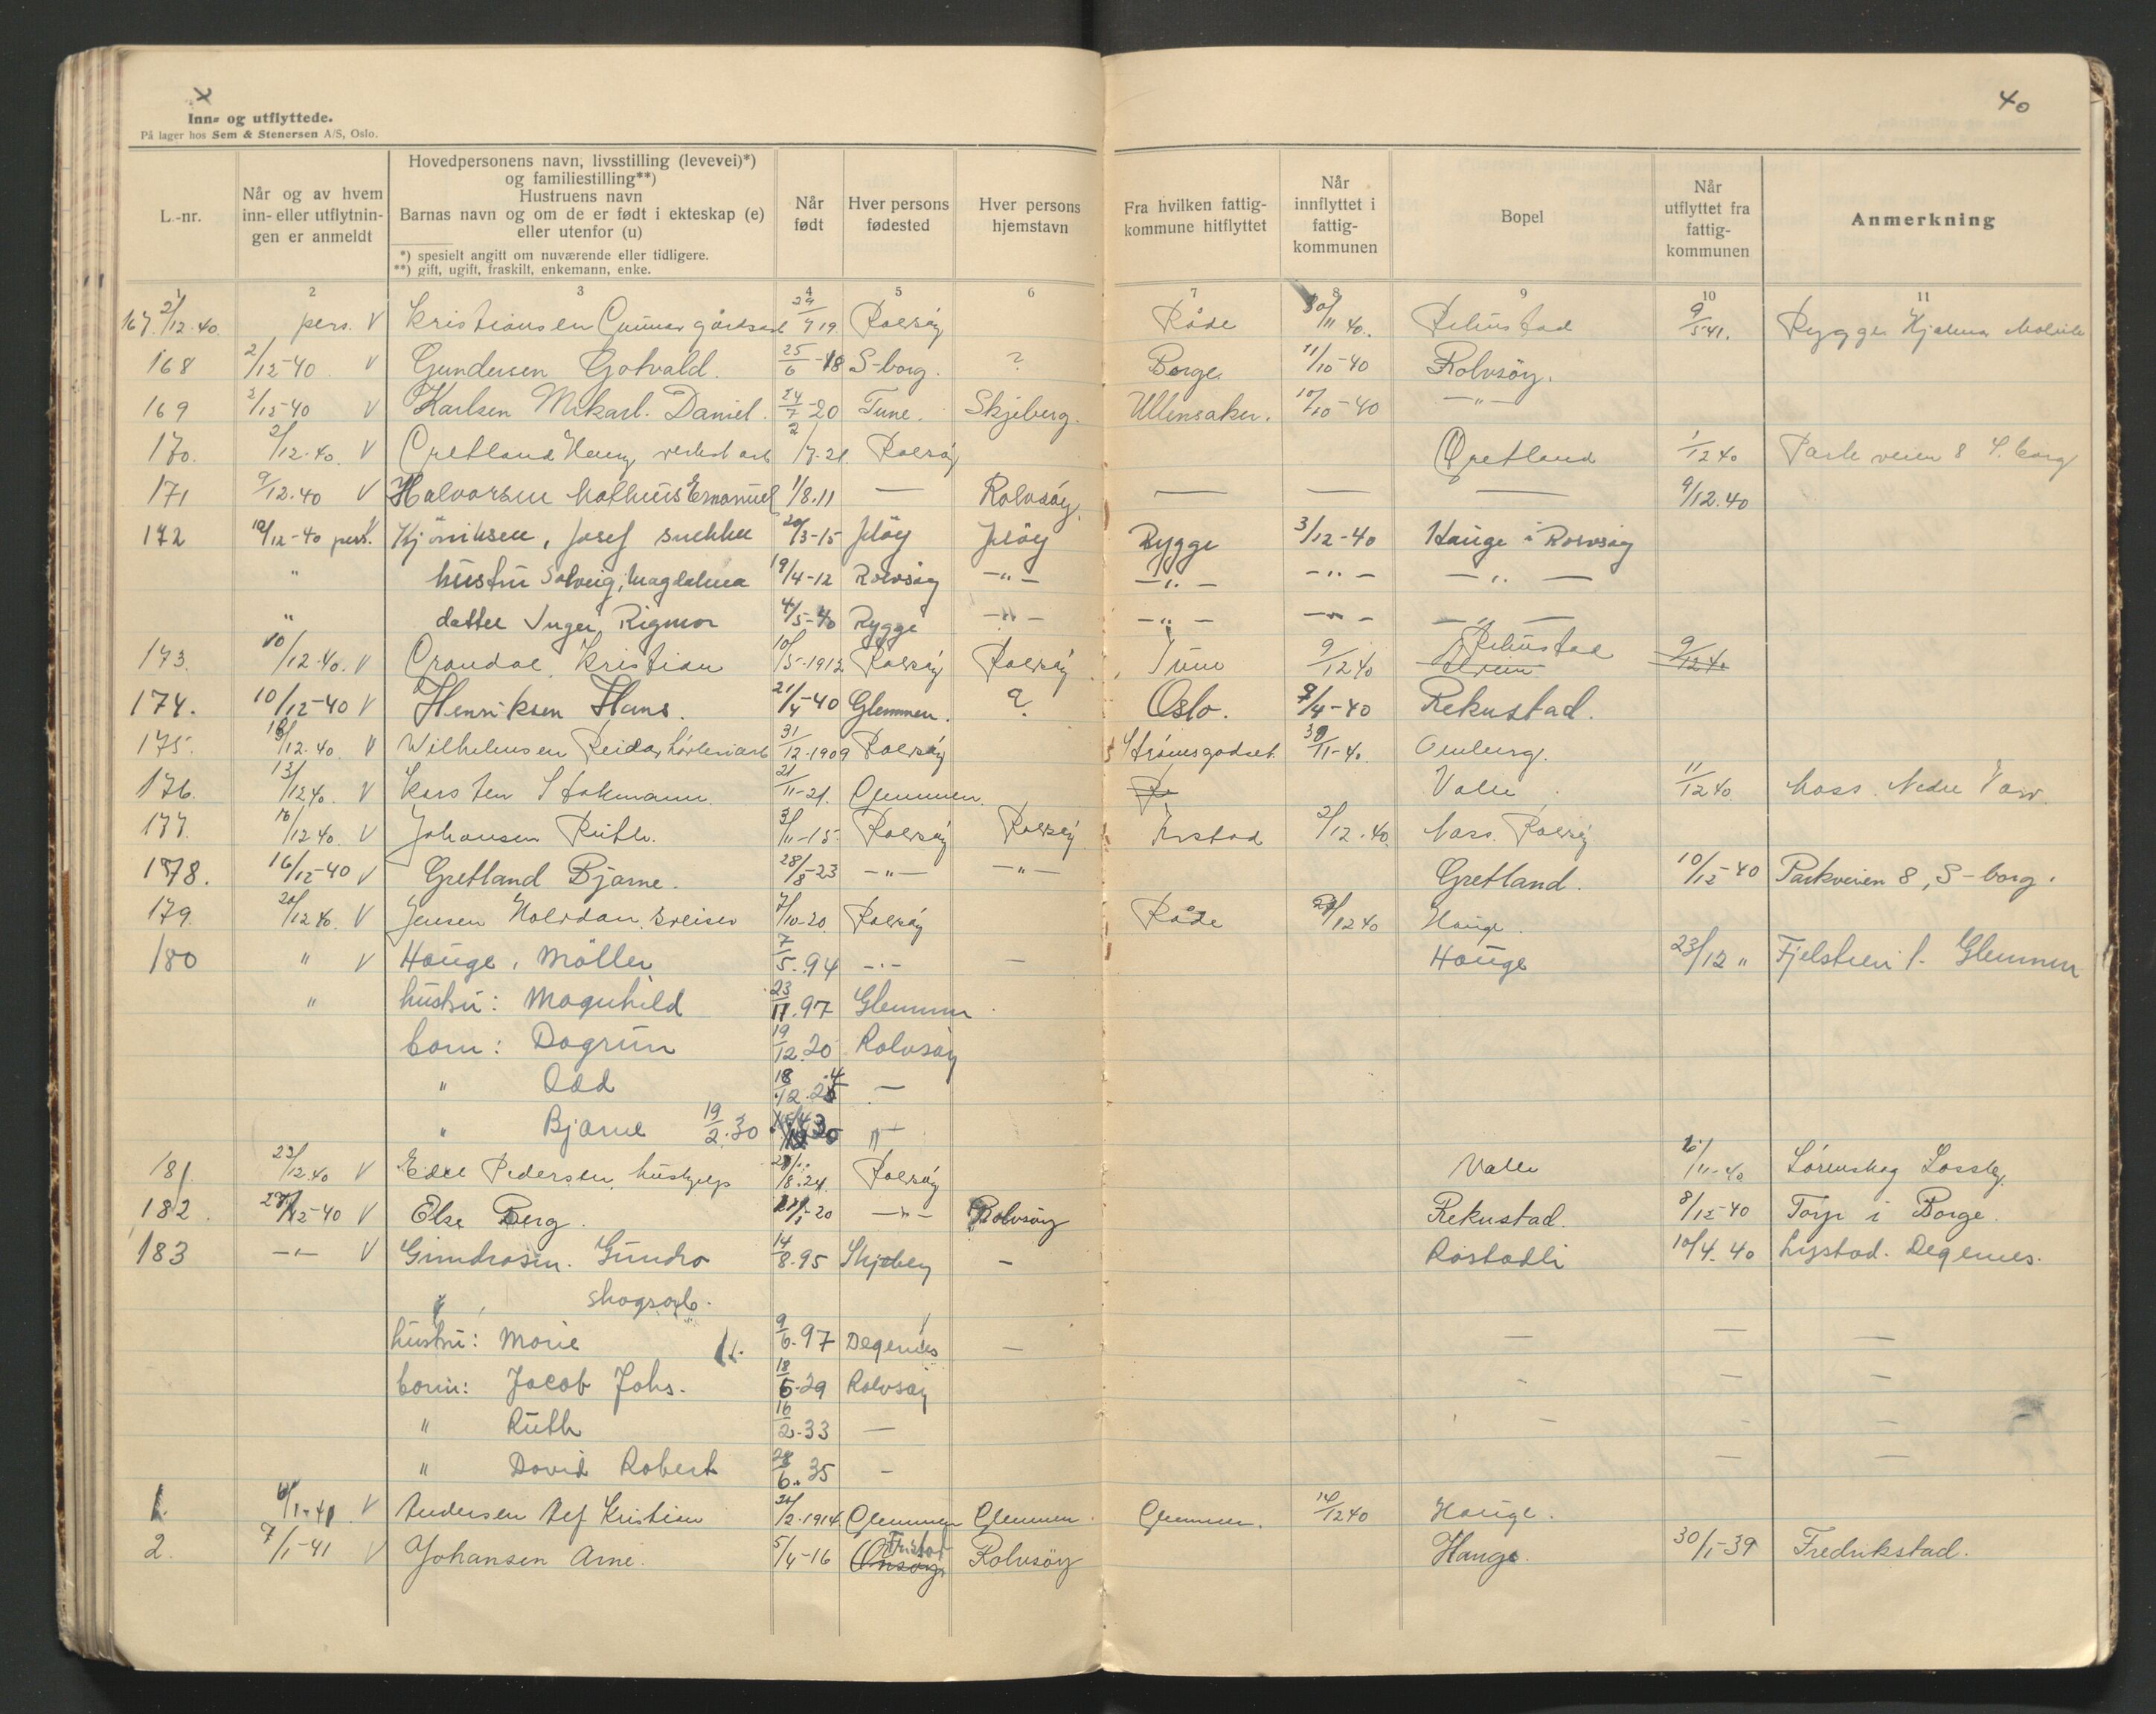 x
40
Inn- og utflyttede.
På lager hos Sem & Stenersen A/S, Oslo.
L.-nr.
Når og av hvem inn- eller utflytnin-gen er anmeldt
Hovedpersonens navn, livsstilling (levevei)*)
og familiestilling**)
Hustruens navn
Barnas navn og om de er født i ekteskap (e)
eller utenfor (u)
*) spesielt angitt om nuværende eller tidligere.
**) gift, ugift, fraskilt, enkemann, enke.
Når født
Hver persons fødested
Hver persons hjemstavn
Fra hvilken fattig-kommune hitflyttet
Når innflyttet i fattig-kommunen
Bopel
Når utflyttet fra fattig-kommunen
Anmerkning
1 2 3 4 5 6 7 8 9 10 11
167. 2/12.40. pers. V Kristiansen Gunnar 29/9 19 Rolvsøy Råde 30/11 40. Rekustad 9/5 41. Rygge Hjalmar
168 2/12-40 V Gundersen Gotvald. 25/6-18 S-borg. ? Borge 11/10-40 Rolvsøy.
169 2/12-40 V Karlsen Mikael. Daniel. 24/7-20 Tune. Skjeberg. Ullensaker. 10/10-40 -"-
170. 2/12.40. V Gretland Henry verkst arb 2/7.21. Rolvsøy Gretland 1/12 40 Parkveien 8 S.borg
171 9/12.40 V Halvorsen Matheus Emanuel 1/8.11 — Rolvsøy. — — — 9/12.40
172 10/12-40 pers. V Kjöniksen, Josef snekker 20/3-15 Jeløy Jeløy Rygge 3/12-40 Hauge i Rolvsøy
" hustru Solveig, Magdalena 19/4-12 Rolvsøy -"- -"- -"- -"-
" datter Inger Rigmor 4/5-40 Rygge -"- -"- -"- -"-
173. 10/12.40. V Grandal Kristian 10/5-1912 Rolvsøy Rolvsøy Tune 9/12 40 Rekustad 9/12 40
174. 10/12-40 V Henriksen Hans. 21/4-40 Glemmen. ? Oslo. 9/4-40 Rekustad.
175. 12.40. V Wilhelmsen Reidar 31/12.1909 Rolvsøy Strømsgodset 30/11-40. Omberg.
176. 13/12 40. V Karsten Stokmann. 21/11-21. Glemmen. Valle 11/12 40 Moss. Nedre
177. 16/12 40. V Johansen Ruth. 3/11-15 Rolvsøy Rolvsøy 2/12.40. Næss. Rolvsøy
178. 16/12-40 V Gretland Bjarne. 28/8-23 -"- -"- Gretland. 10/12-40 Parkveien 8, S-borg.
179. 20/12 40. V Jensen Halvdan. 7/10-20. Rolvsøy Råde 12 40 Hauge.
180 " V Hauge, Möller 7/5.94 -"- — Hauge 23/12 " Glemmen
" hustru: Magnhild 23/11.97 Glemmen
barn: Dagrun 19/12.20 Rolvsøy
" Odd 18/12.24 —
" Bjarne 19/2.30 "
181. 23/12.40 V Edel Pedersen, hushjelp 8.24. Rolvsøy Valle 11-40 Lørenskog Losby.
182. 12-40 V Else Berg. 1-20 -"- Rolvsøy Rekustad. 8/12-40 Torp i Borge.
183 -"- V Gundrosen. Gundro 14/8.95 Skjeberg — Rostadli 10/4-40 Lystad. Degernes.
skogsarb.
hustru: Marie 9/6.97 Degernes — — — —
barn: Jacob Johs. 18/5-29 Rolvsøy - — —
" Ruth 16/2-33 — - - —
" David Robert 28/6.35 - — —
1. 6/1-41 V Andersen Alf Kristian 2.1914. Glemmen Glemmen. Glemmen. 14/12 40 Hauge.
2. 7/1-41 V Johansen Arne. 5/4-16 Onsøy Fr.stad Rolvsøy Hauge. 30/1-39 Fredrikstad.